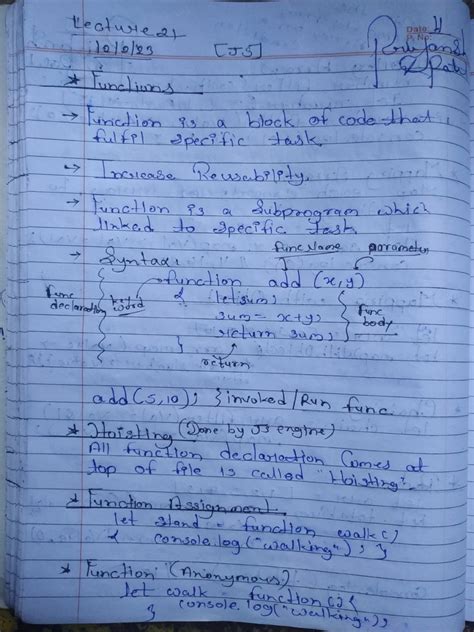 Lecture 21
[JS]
Date
P. No.
* Functions
→ Function is a block of code that
fulfil specific task.
→ Increase Reusability.
→ Function is a Subprogram which
linked to specific task
→ Syntax:
func name parameter
function add (x,y)
func declaration
key word
{ let sum;
sum = x+y;
return sum;
}
func body
return
add(5,10); } invoked/Run func
* Hoisting (Done by JS engine)
All function declaration Comes at
top of file is called "Hoisting".
* Function Assignment
let stand = function walk()
{ console.log("walking"); }
* Function (Anonymous)
let walk = function() {
} console log("walking");